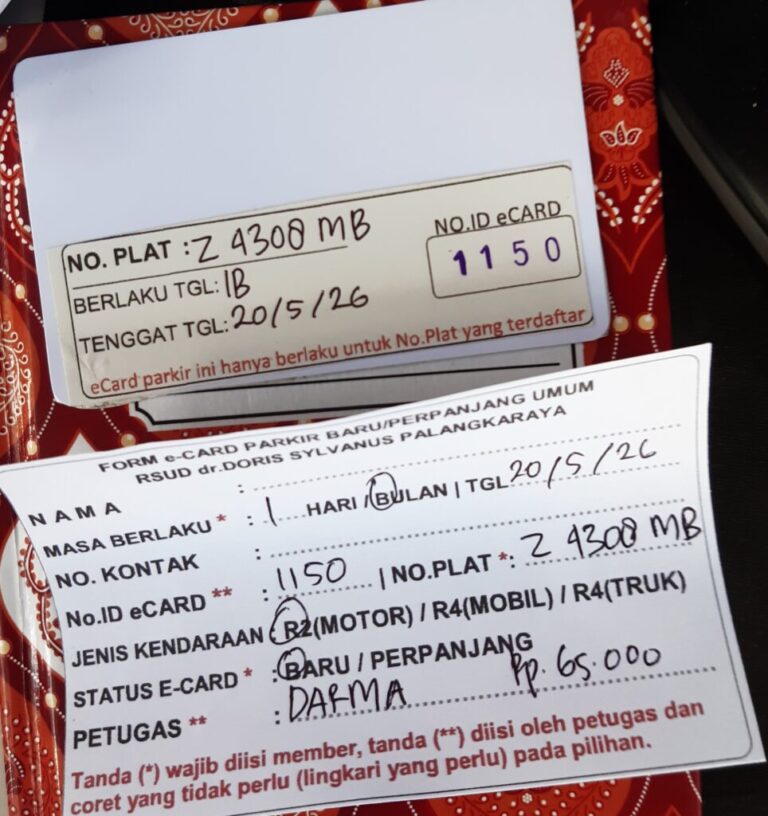 NO. PLAT : Z 4308 MB
NO.ID eCARD
1150
BERLAKU TGL: 1B
TENGGAT TGL: 20/5/26
eCard parkir ini hanya berlaku untuk No.Plat yang terdaftar
FORM e-CARD PARKIR BARU/PERPANJANG UMUM
RSUD dr.DORIS SYLVANUS PALANGKARAYA
NAMA :
MASA BERLAKU * : 1 HARI / BULAN | TGL 20/5/26
NO. KONTAK :
No.ID eCARD ** : 1150 | NO.PLAT *: Z 4308 MB
JENIS KENDARAAN : R2(MOTOR) / R4(MOBIL) / R4(TRUK)
STATUS E-CARD * : BARU / PERPANJANG
PETUGAS ** : DARMA Rp. 65.000
Tanda (*) wajib diisi member, tanda (**) diisi oleh petugas dan
coret yang tidak perlu (lingkari yang perlu) pada pilihan.